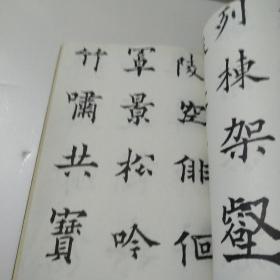 列棟架壑
陵空俳佪
軍景松吟
竹嘯共寶